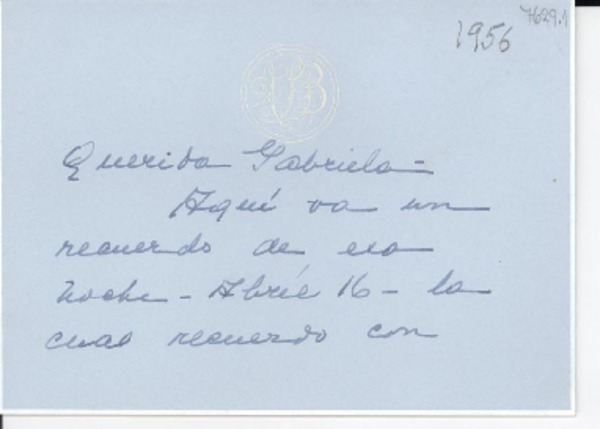 7629.1
1956
Querida Gabriela-
Aquí va un
recuerdo de esa
noche - Abril 16 - la
cual recuerdo con